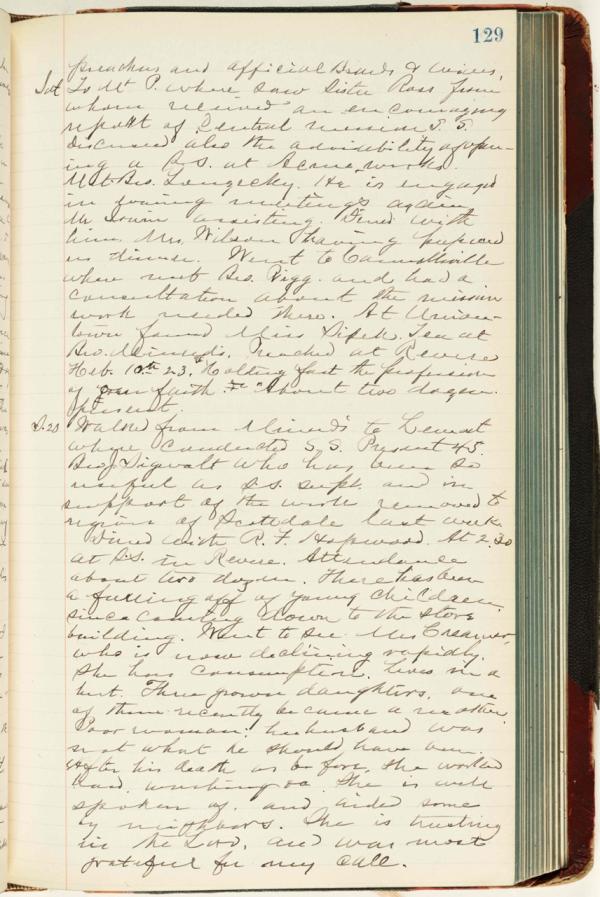 129
preachers and official Boards & wives,
Sat To Mt P. where saw Sister Ross from
whom received an encouraging
report of Central mission S. S.
discussed also the advisability of open-
ing a S. S. at Acme works.
Met Bro. Longecky. He is engaged
in evening meetings again
Mr assisting. Dined with
him. Mrs. Wilson having prepared
us dinner. Went to Connellsville
where met Bro. Pigg. and had a
consultation about the mission
work needed there. At Union-
town found Miss Tea at
Bro. Miner's. Preached at Revere
Heb. 10th 23, "Holding fast the profession
of our faith &c" About two dozen
present.
S. 20 Walked from Minerd's to Lemont
where conducted S. S. Present 45.
Bro. J Sigwalt who has been so
useful as S. S. supt. and in
support of the work removed to
region of Scottdale last week
Dined with R. F. Hopwood. At 2.30
at S. S. in Revere. Attendance
about two dozen. There has been
a falling off of young children,
since coming down to the store
building. Went to see Mrs Creamer,
who is now declining rapidly.
She has consumption. Lives in a
hut. Three grown daughters, one
of them recently became a mother.
Poor woman: her husband was
not what he should have been.
After his death as before, she worked
hard, washing &c. She is well
spoken of, and aided some
by neighbors. She is trusting
in the Lord, and was most
grateful for my call.